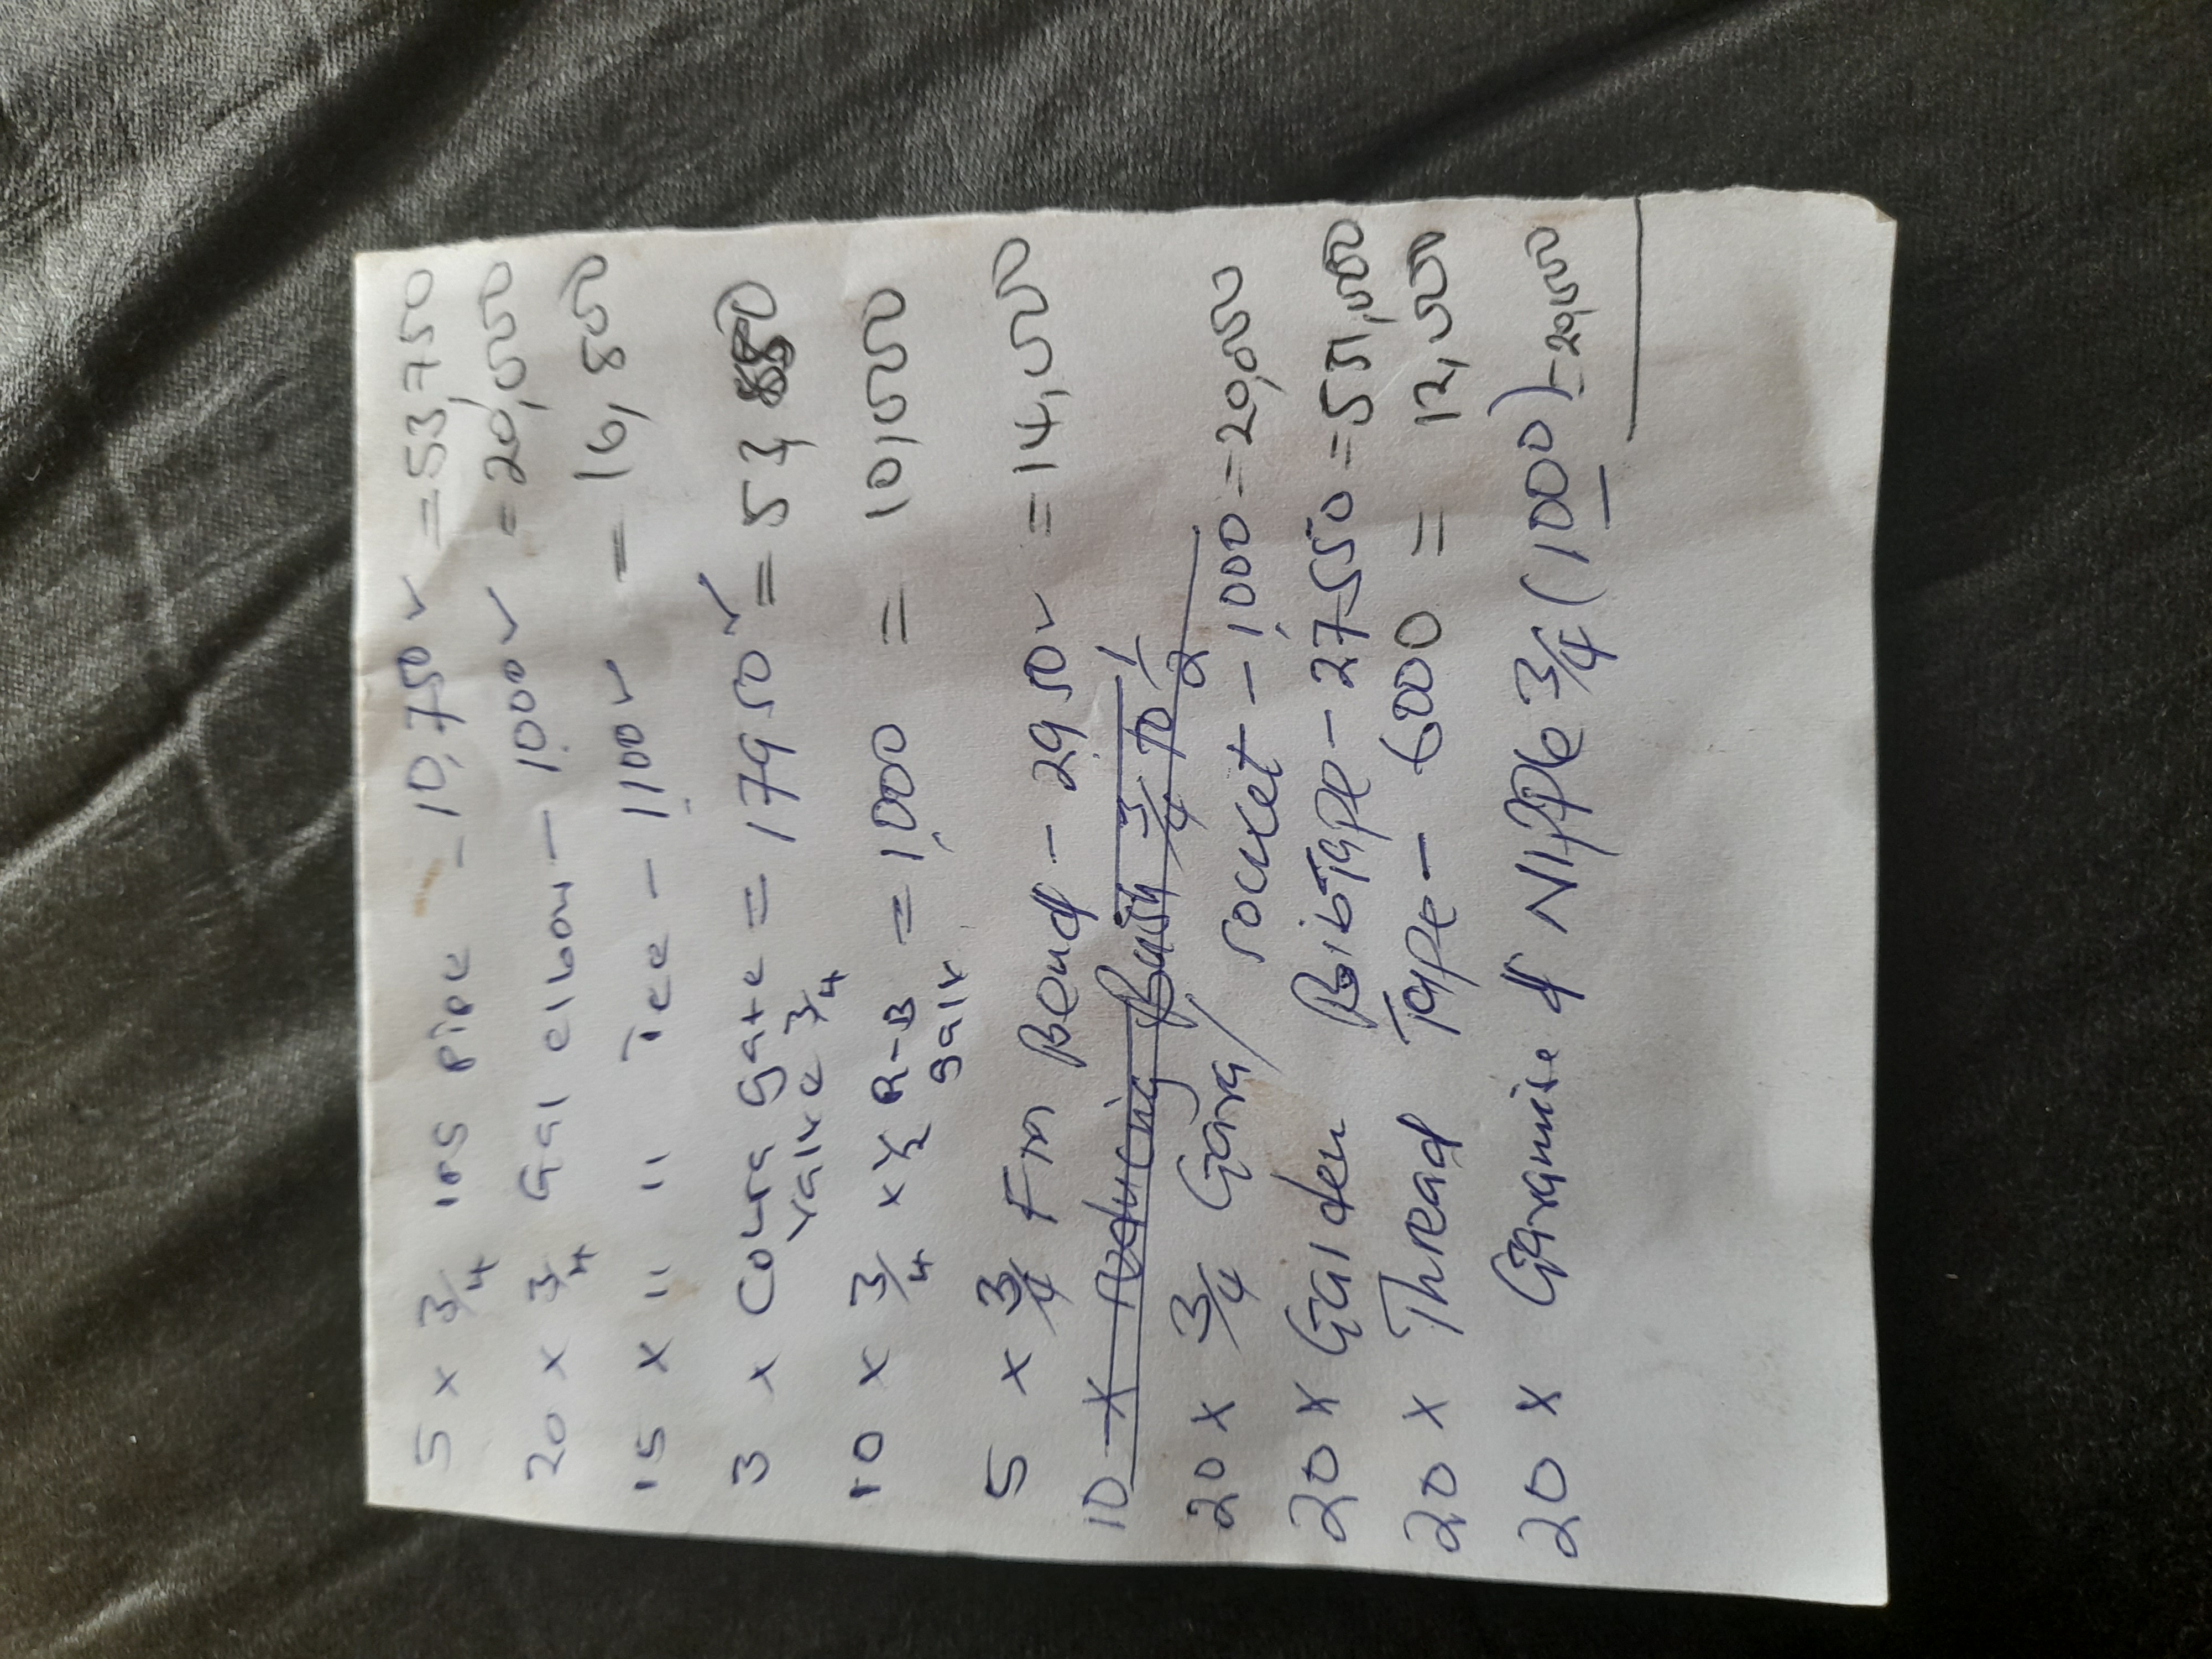 5 x 3/4 IPS Pipe - 10,750 ✓ = 53,750
20 x 3/4 Gal elbow - 1,000 ✓ = 20,000
15 x " " Tee - 1,100 ✓ = 16,500
3 x Cobra gate = 17950 ✓ = 53,850
valve 3/4
10 x 3/4 x 1/2 R-B = 1,000 = 10,000
galv
5 x 3/4 FM Bend - 2950 ✓ = 14,000
10 x reducing Bush 3/4 to 1/2
20 x 3/4 Gava/ socket - 1,000 = 20,000
20 x Garden BibTape - 27550 = 551,000
20 x Thread Tape - 6000 = 12,000
20 x Gavamise d NIPPle 3/4 (1000) = 20,000